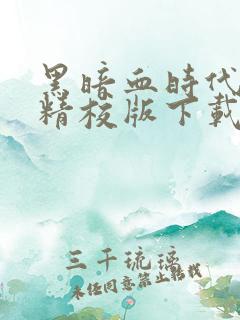 黑暗血時代
精校版下載
三千琉璃
未经同意禁止转载